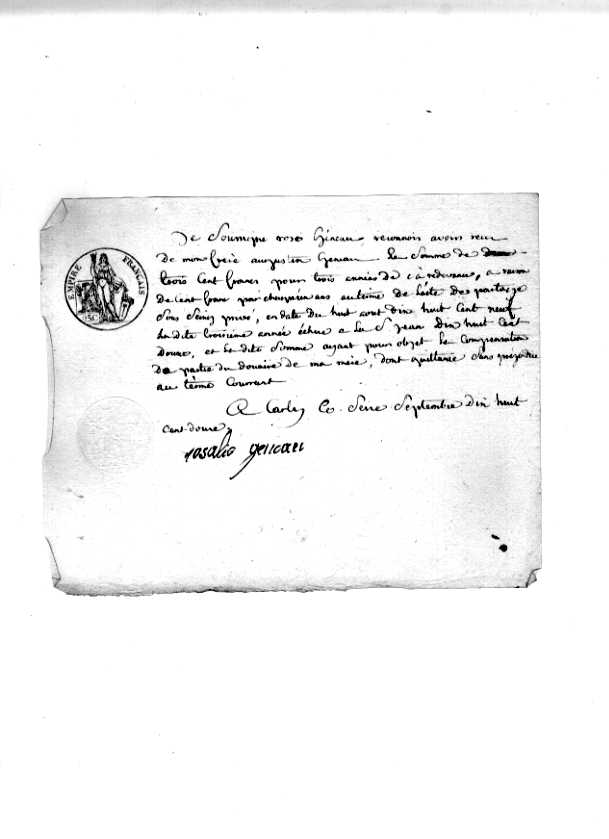 EMPIRE FRANÇAIS
Je Soussigné rose Géneau reconnois avoir reçu
de mon frere augustin Geneau La Somme de
trois Cent francs pour trois années de, a raison
de Cent franc par chaque ans au terme de L'acte des partage
Sous Seing privé, en date du huit aout dix huit Cent neuf
La dite troisieme année échue a la St jean dix huit Cent
Douze, et La dite Somme ayant pour objet La Compensation
De partie du douaire de ma mere, dont quittance Sans prejudice
au terme Courrant
A Le Seize Septembre Dix huit
Cent-douze
rosalie geneau